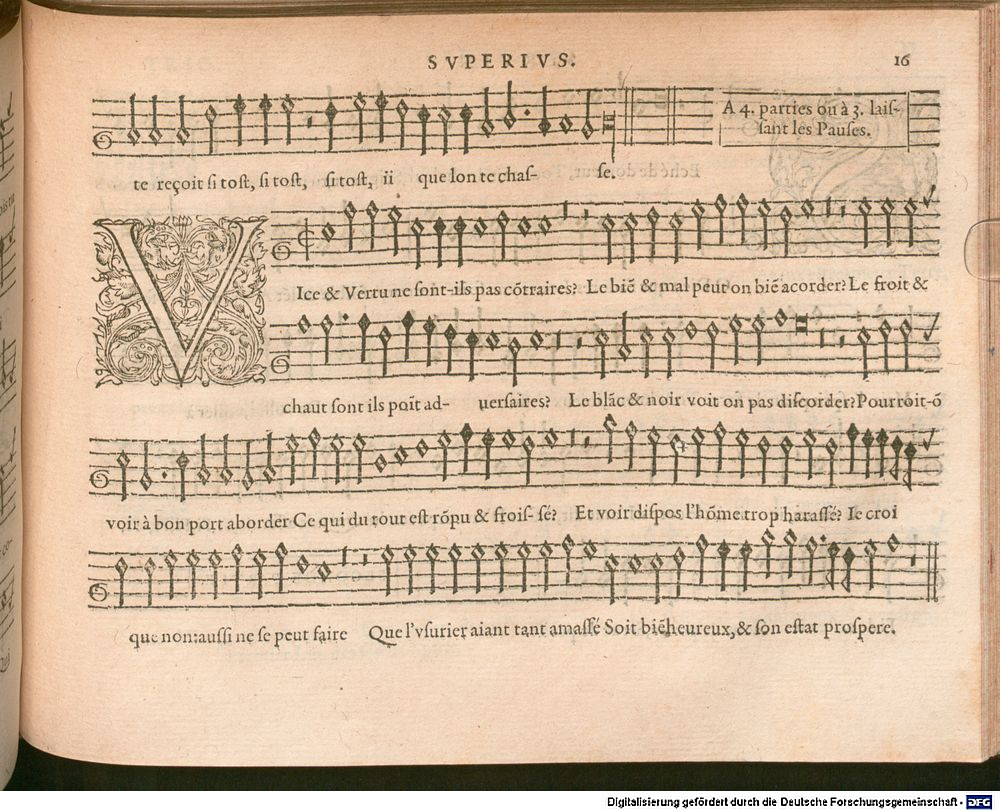 SVPERIVS.
16
A 4. parties ou à 3. laiſ-
ſant les Pauſes.
te reçoit ſi toſt, ſi toſt, ſi toſt, ii que lon te chaſ- ſe.
VIce & Vertu ne ſont-ils pas cõtraires? Le biẽ & mal peut on biẽ acorder? Le froit &
chaut ſont ils poĩt ad- uerſaires? Le blãc & noir voit on pas diſcorder? Pourroit-õ
voir à bon port aborder Ce qui du tout eſt rõpu & froiſ- ſé? Et voir diſpos l'hõme trop haraſſé? Ie croi
que non: auſſi ne ſe peut faire Que l'vſurier aiant tant amaſſé Soit biẽheureux, & ſon eſtat proſpere.
Digitalisierung gefördert durch die Deutsche Forschungsgemeinschaft - DFG